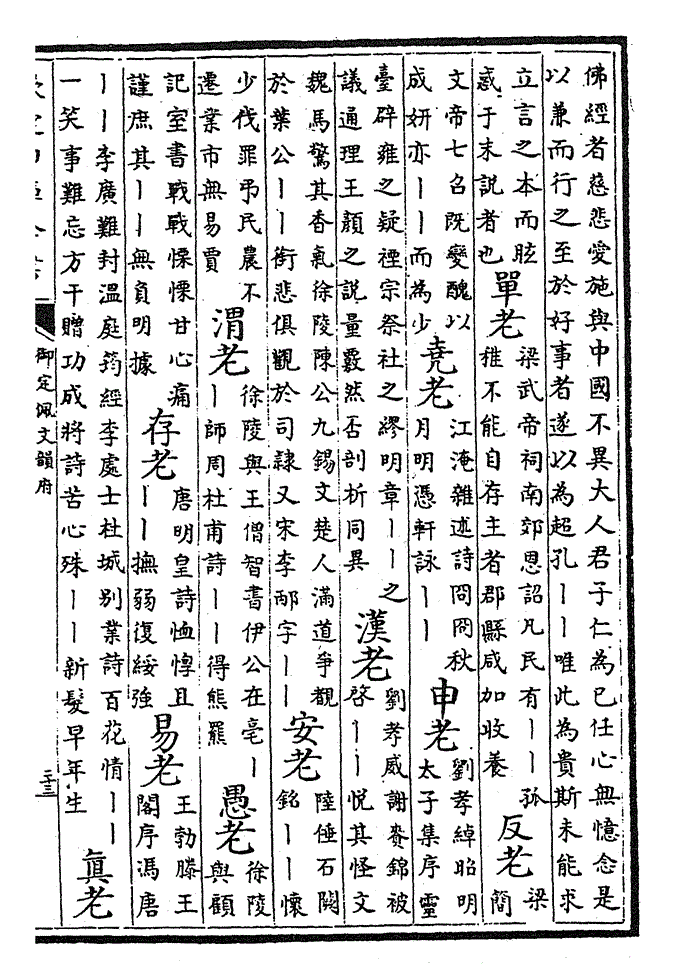 佛經者慈悲愛施與中國不異大人君子仁為已任心無憶念是
以兼而行之至於好事者遂以為超孔丨丨唯此為貴斯未能求
立言之本而眩
惑于末說者也
單老
梁武帝祠南郊恩詔凡民有丨丨孤
稚不能自存主者郡縣咸加收養
反老
梁
簡
文帝七召既變醜以
成妍亦丨丨而為少
堯老
江淹雜述詩冏冏秋
月明憑軒詠丨丨
申老
劉孝綽昭明
太子集序靈
臺辟雍之疑禋宗祭社之繆明章丨丨之
議通理王顏之說量覈然否剖析同異
漢老
劉孝威謝賚錦被
啓丨丨悅其怪文
魏馬驚其香氣徐陵陳公九錫文楚人滿道爭觀
於葉公丨丨銜悲俱觀於司隸又宋李邴字丨丨
安老
陸倕石闕
銘丨丨懷
少伐罪弔民農不
遷業市無易賈
渭老
徐陵與王僧智書伊公在亳丨
丨師周杜甫詩丨丨得熊羆
愚老
徐陵
與顧
記室書戰戰慄慄甘心痛
謹庶其丨丨無負明據
存老
唐明皇詩恤惸且
丨丨撫弱復綏強
易老
王勃滕王
閣序馮唐
丨丨李廣難封溫庭筠經李處士杜城別業詩百花情丨丨
一笑事難忘方干贈功成將詩苦心殊丨丨新髮早年生
眞老
御定佩文韻府